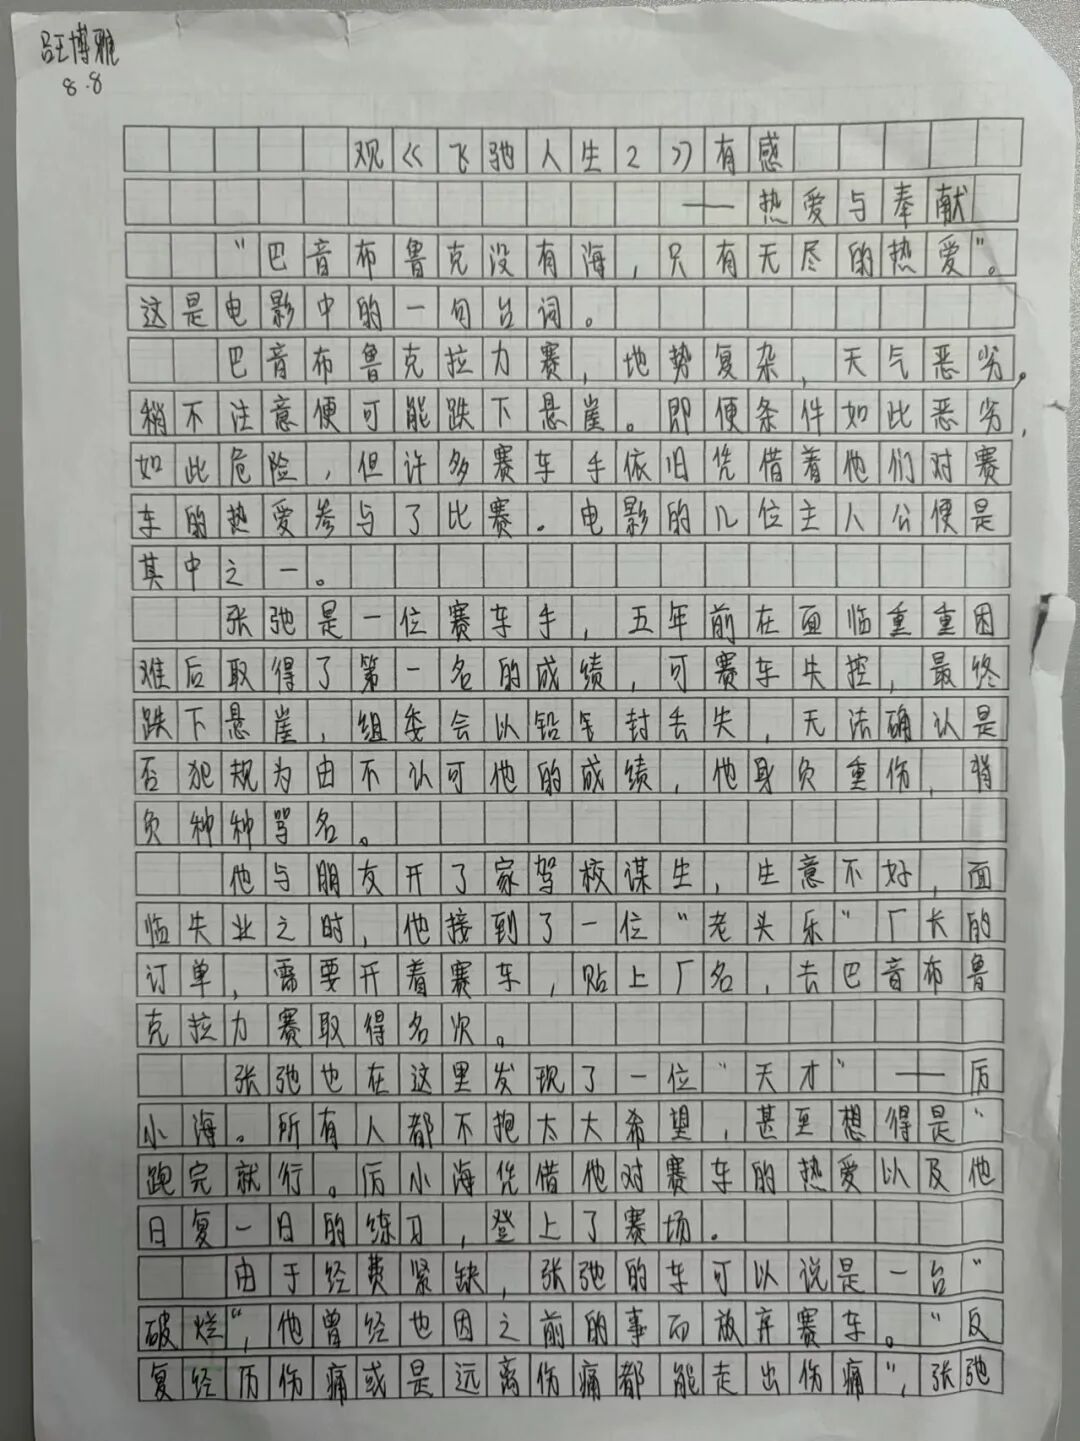 汪博雅
8.8
观《飞驰人生2》有感
——热爱与奉献
“巴音布鲁克没有海,只有无尽的热爱”。
这是电影中的一句台词。
巴音布鲁克拉力赛,地势复杂,天气恶劣,
稍不注意便可能跌下悬崖。即便条件如此恶劣,
如此危险,但许多赛车手依旧凭借着他们对赛
车的热爱参与了比赛。电影的几位主人公便是
其中之一。
张弛是一位赛车手,五年前在面临重重困
难后取得了第一名的成绩,可赛车失控,最终
跌下悬崖,组委会以铅封丢失,无法确认是
否犯规为由不认可他的成绩,他身负重伤,背
负种种骂名。
他与朋友开了家驾校谋生,生意不好,面
临失业之时,他接到了一位“老头乐”厂长的
订单,需要开着赛车,贴上厂名,去巴音布鲁
克拉力赛取得名次。
张弛也在这里发现了一位“天才”——厉
小海。所有人都不抱太大希望,甚至想得是“
跑完就行。厉小海凭借他对赛车的热爱以及他
日复一日的练习,登上了赛场。
由于经费紧缺,张弛的车可以说是一台“
破烂“,他曾经也因之前的事而放弃赛车。“反
复经历伤痛或是远离伤痛都能走出伤痛”,张弛